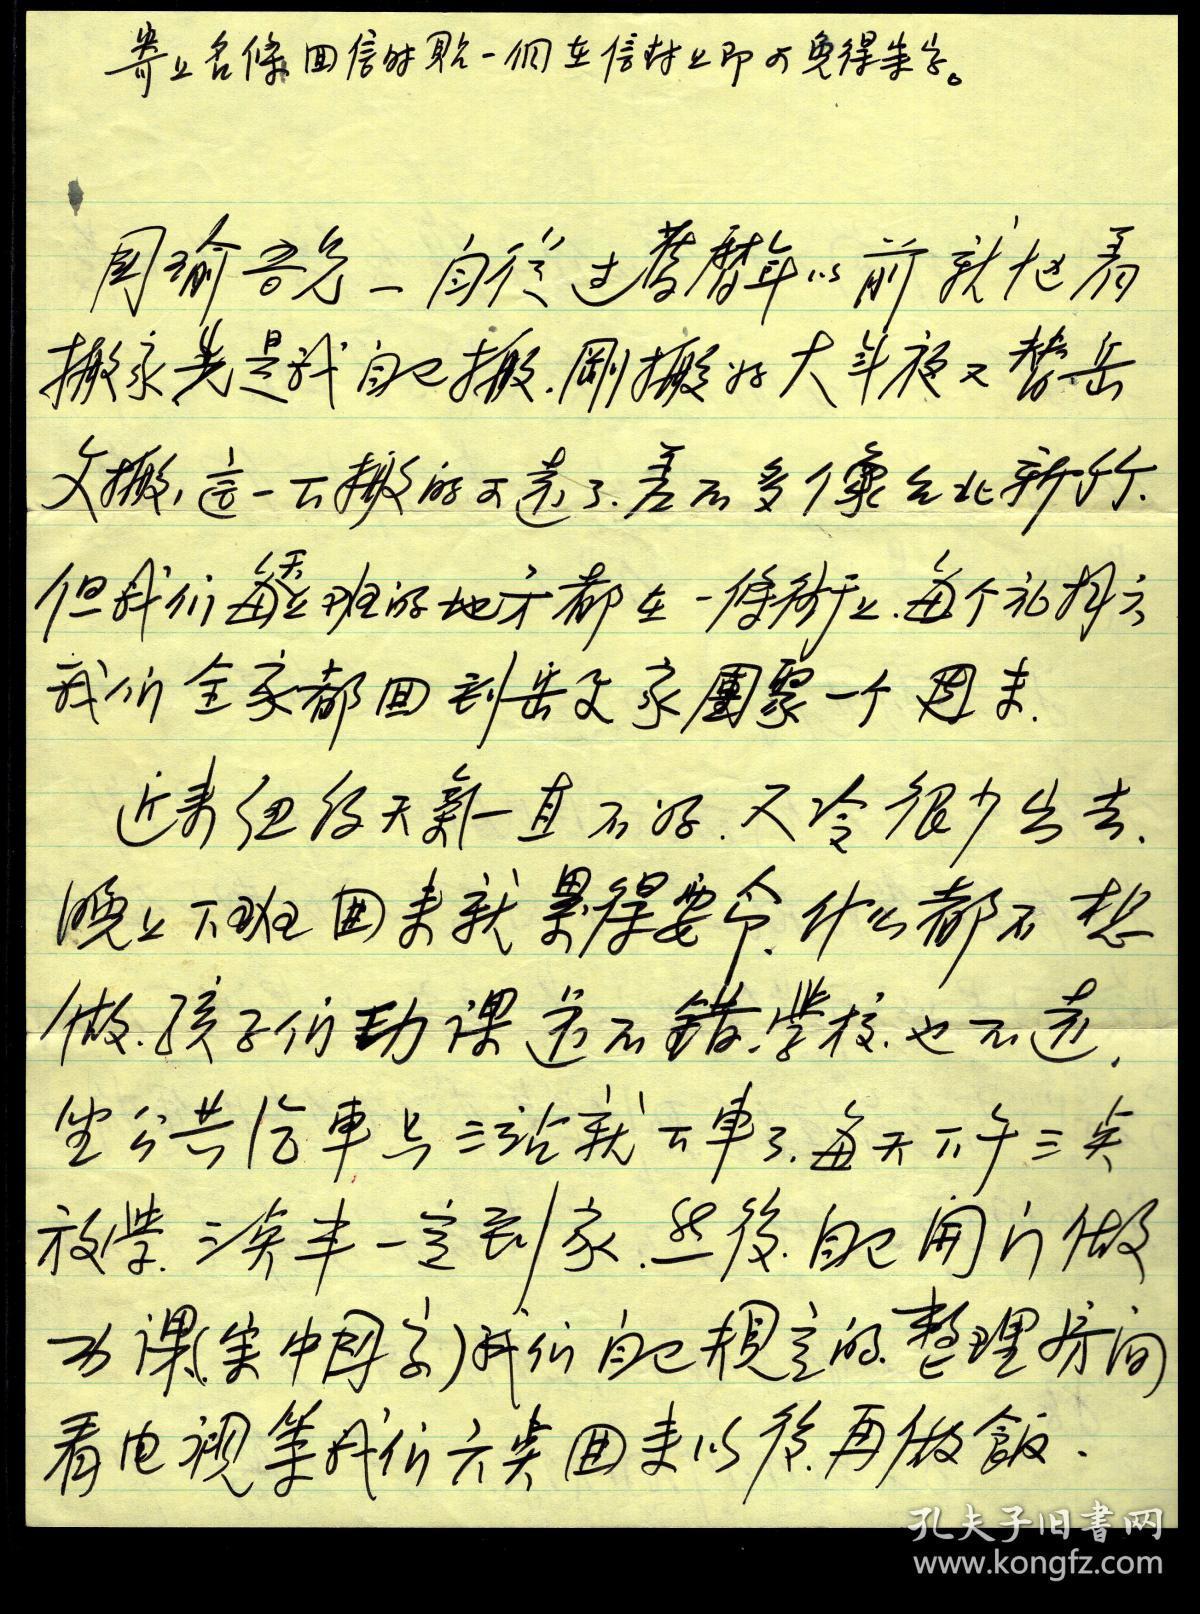 寄上名條回信時貼一個在信封上即可免得寫字。
周瑜吾兄—自從过舊曆年以前就忙着
搬家先是我自己搬.剛搬好大年夜又替岳
父搬,這一下搬的可遠了.差不多像台北新竹.
但我们每天上班的地方都在一條街上.每个礼拜六
我们全家都回到岳父家團聚一个週末.
近来纽约天氣一直不好.又冷很少出去.
晚上下班回来就累得要命.什么都不想
做.孩子们功課还不錯.學校也不遠.
坐公共汽車只三站就下車了.每天下午三点
放學.三点半一定到家.然後自己開门做
功課(寫中国字)我们自己規定的.整理房间
看电視等我们六点回来以後再做飯.
孔夫子旧書网
www.kongfz.com